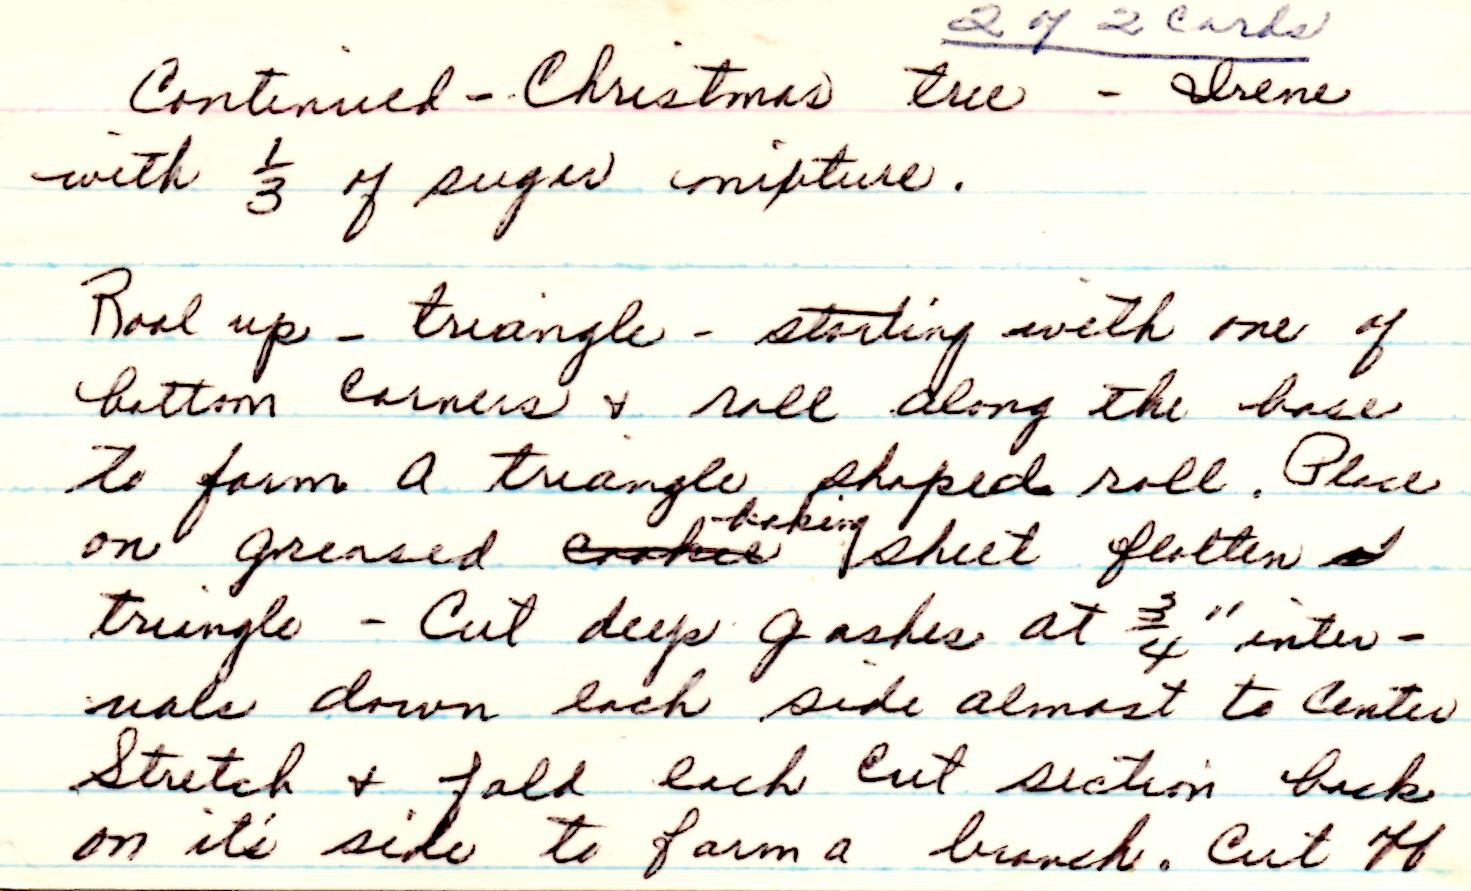 2 of 2 Cards
Continued - Christmas tree - Irene
with 1/3 of sugar mixture.
Rool up - triangle - starting with one of
bottom corners & roll along the base
to form a triangle shaped roll. Place
on greased ~~cookie~~ baking sheet flatten
triangle - Cut deep gashes at 3/4" inter-
vals down each side almost to center
Stretch & fold each cut section back
on it's side to form a branch. Cut off